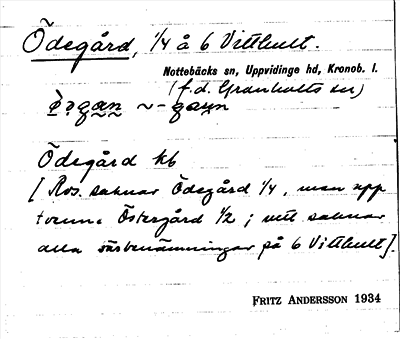 Ödegård, 1/4 å 6 Vitthult.
Nottebäcks sn, Uppvidinge hd, Kronob. l.
(f.d. Granhults sn)
Ödegård kb
[Ros. saknar Ödegård 1/4, men upp
Östergård 1/2; saknar
alla särbenämningar på 6 Vitthult].
FRITZ ANDERSSON 1934